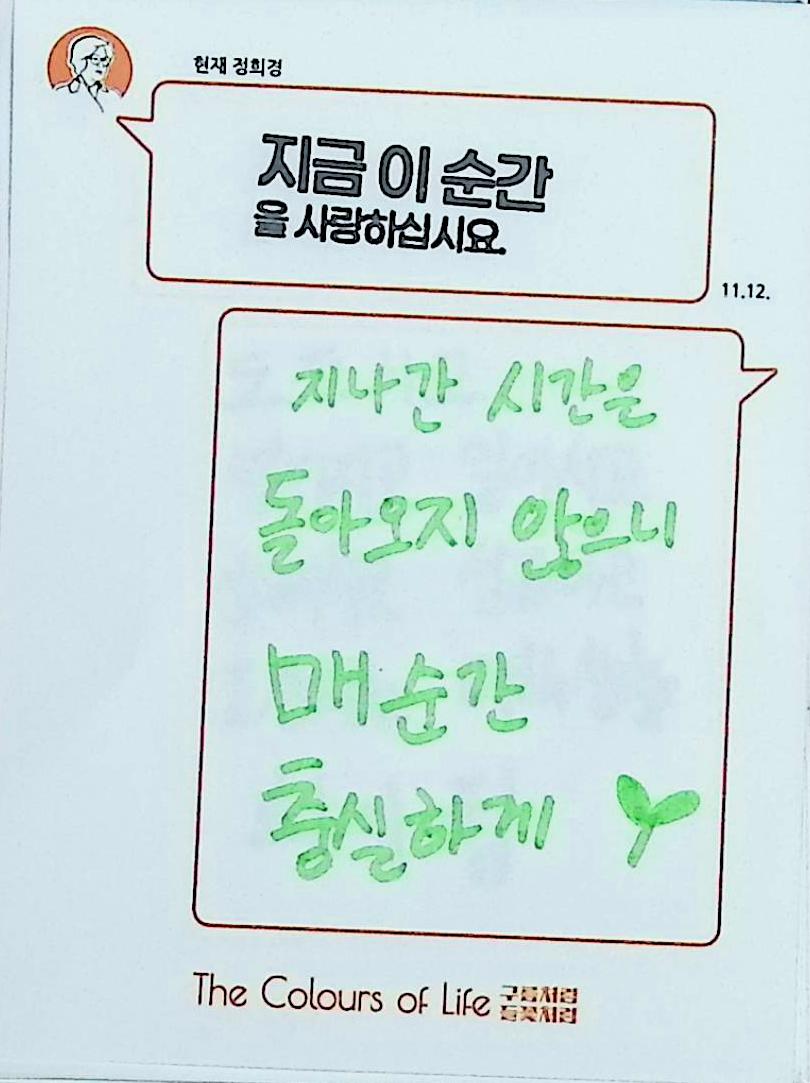 현재 정희경
지금 이 순간
을 사랑하십시요.
11.12.
지나간 시간은
돌아오지 않으니
매 순간
충실하게
The Colours of Life 구름처럼
들꽃처럼